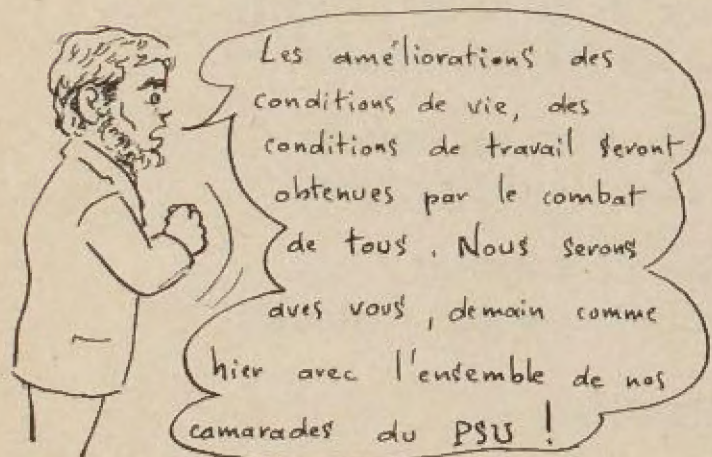 Les améliorations des
conditions de vie, des
conditions de travail seront
obtenues par le combat
de tous. Nous serons
aves vous, demain comme
hier avec l'ensemble de nos
camarades du PSU !